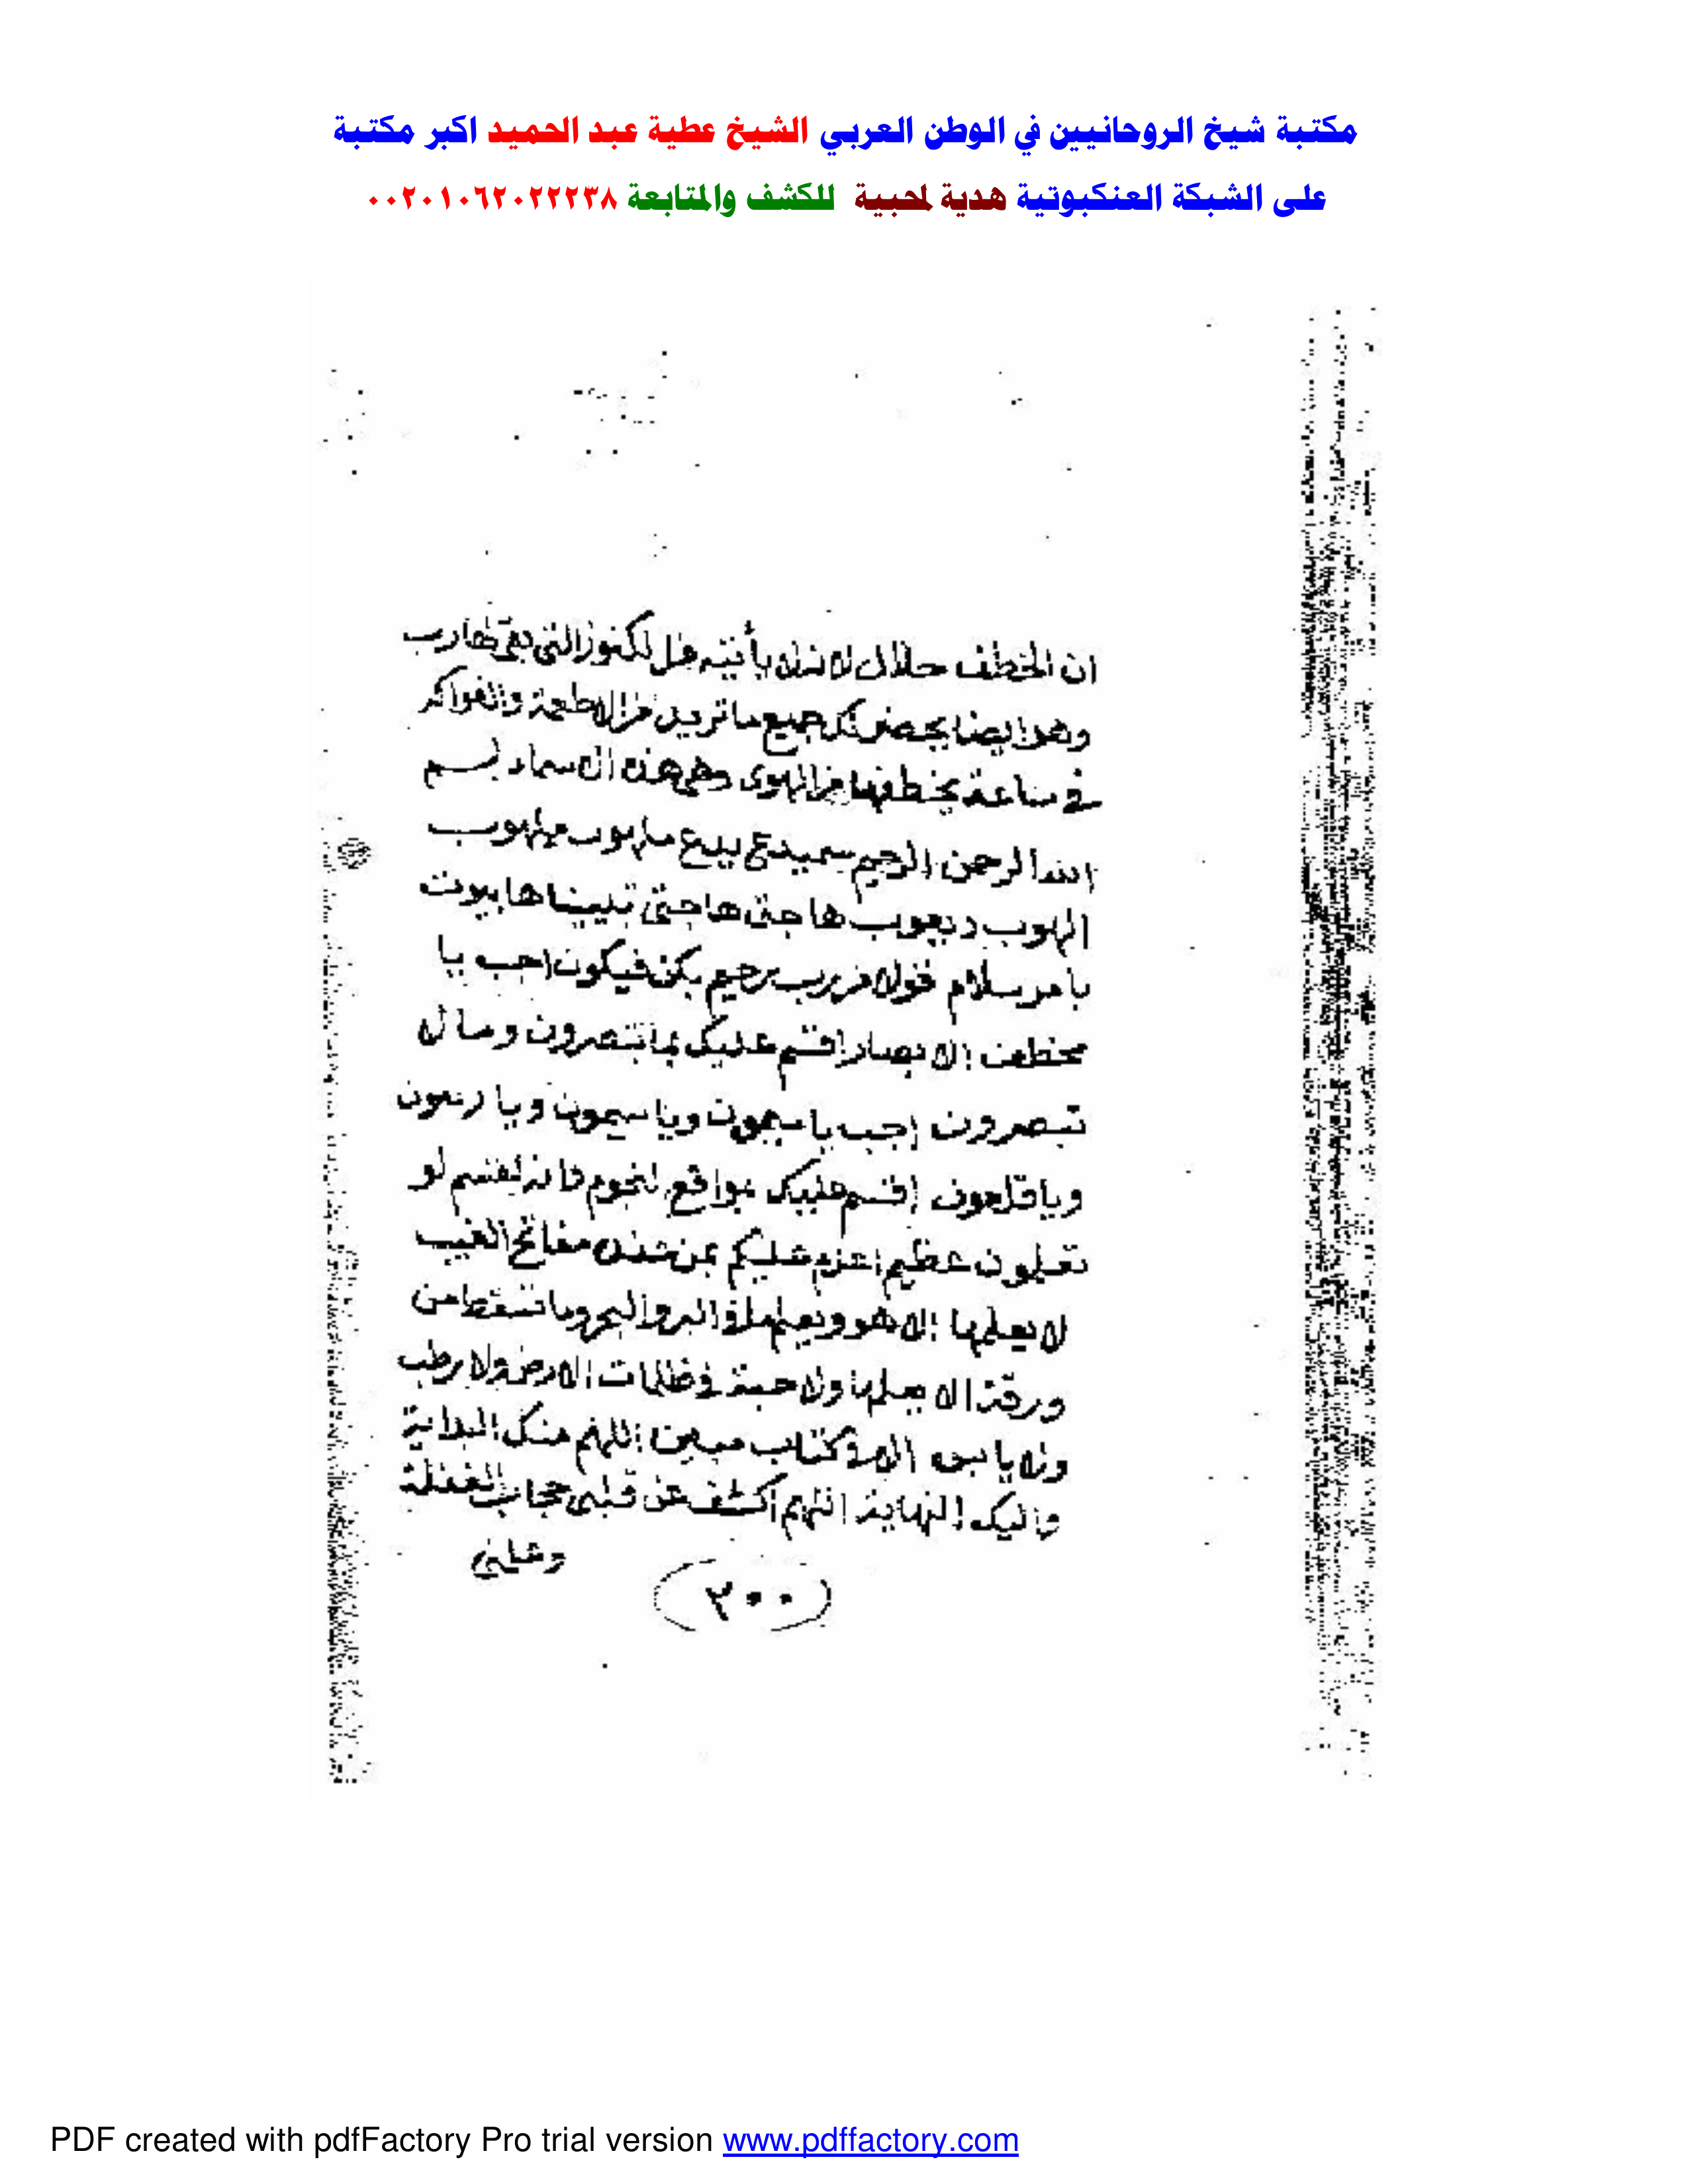 مكتبة شيخ الروحانيين في الوطن العربي الشيخ عطية عبد الحميد اكبر مكتبة
على الشبكة العنكبوتية هدية لمحبية للكشف والمتابعة ٠٠٢٠١٠٦٢٠٢٢٢٣٨
ان الخطف حلال لانه يأتيه من الكنوز التي
وهو ايضا يحضر لك جميع ما تريد من الاطعمة والفواكه
في ساعة يخطفها من الهوى وهي هذه الاسماء بسم
الله الرحمن الرحيم
باهر سلام قولا من رب رحيم بكن فيكون اجب يا
مخطف الابصار اقسم عليك بما تبصرون وما لا
تبصرون اجب يا ويا سيمون ويا
ويا اقسم عليك بمواقع النجوم فانه لقسم لو
تعلمون عظيم اعزم عليكم بمن عنده مفاتح الغيب
لا يعلمها الا هو ويعلم ما في البر والبحر وما تسقط من
ورقة الا يعلمها ولا حبة في ظلمات الارض ولا رطب
ولا يابس الا في كتاب مبين اللهم منك البداية
واليك النهاية اللهم اكشف عن قلبي حجاب الغفلة
وعلمني
(٣٠٠)
PDF created with pdfFactory Pro trial version www.pdffactory.com